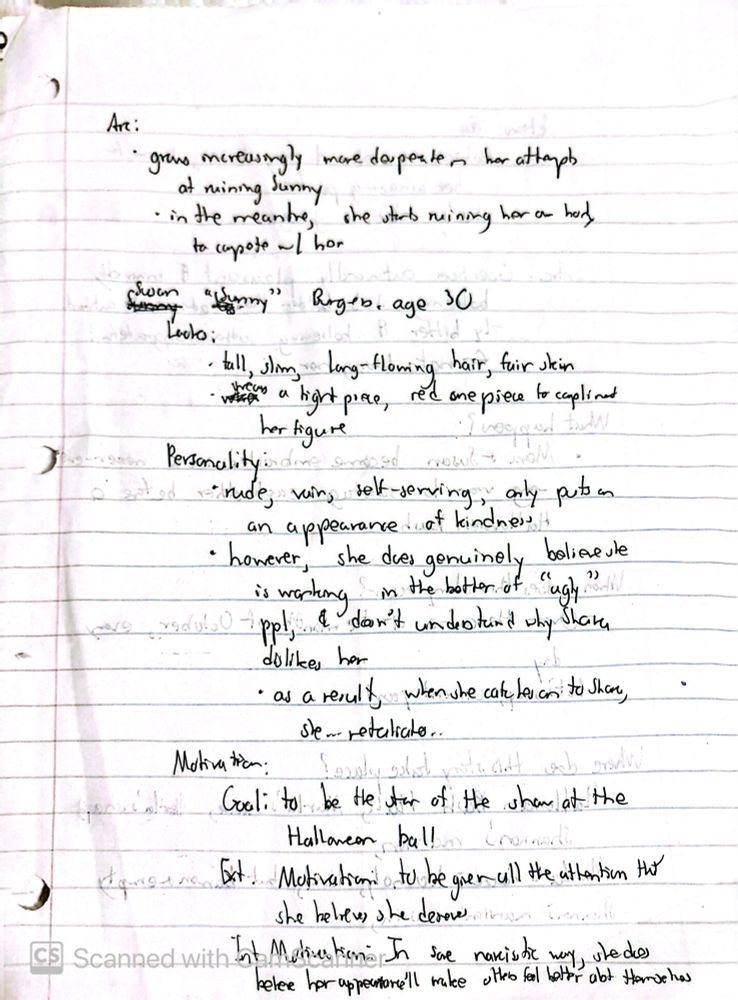 Arc:
· grows increasingly more desperate in her attempts
at ruining Sunny
· in the meantime, she starts ruining her own body
to compete w/ her
Susan "Sunny" Burges. age 30
Looks:
· tall, slim, long-flowing hair, fair skin
· wears a tight piece, red one piece to
her figure
Personality:
· rude, vain, self-serving, only puts on
an appearance of kindness
· however, she does genuinely believe she
is working in the better of "ugly"
ppl, & doesn't understand why Shara
dislikes her
· as a result, when she catches on to Shara,
she... retaliates..
Motivation:
Goal: to be the star of the show at the
Halloween ball
Ext. Motivation: to be given all the attention that
she believes she deserves
Int Motivation: In some narcistic way, she does
believe her appearance'll make others feel better abt themselves
CS Scanned with CamScanner